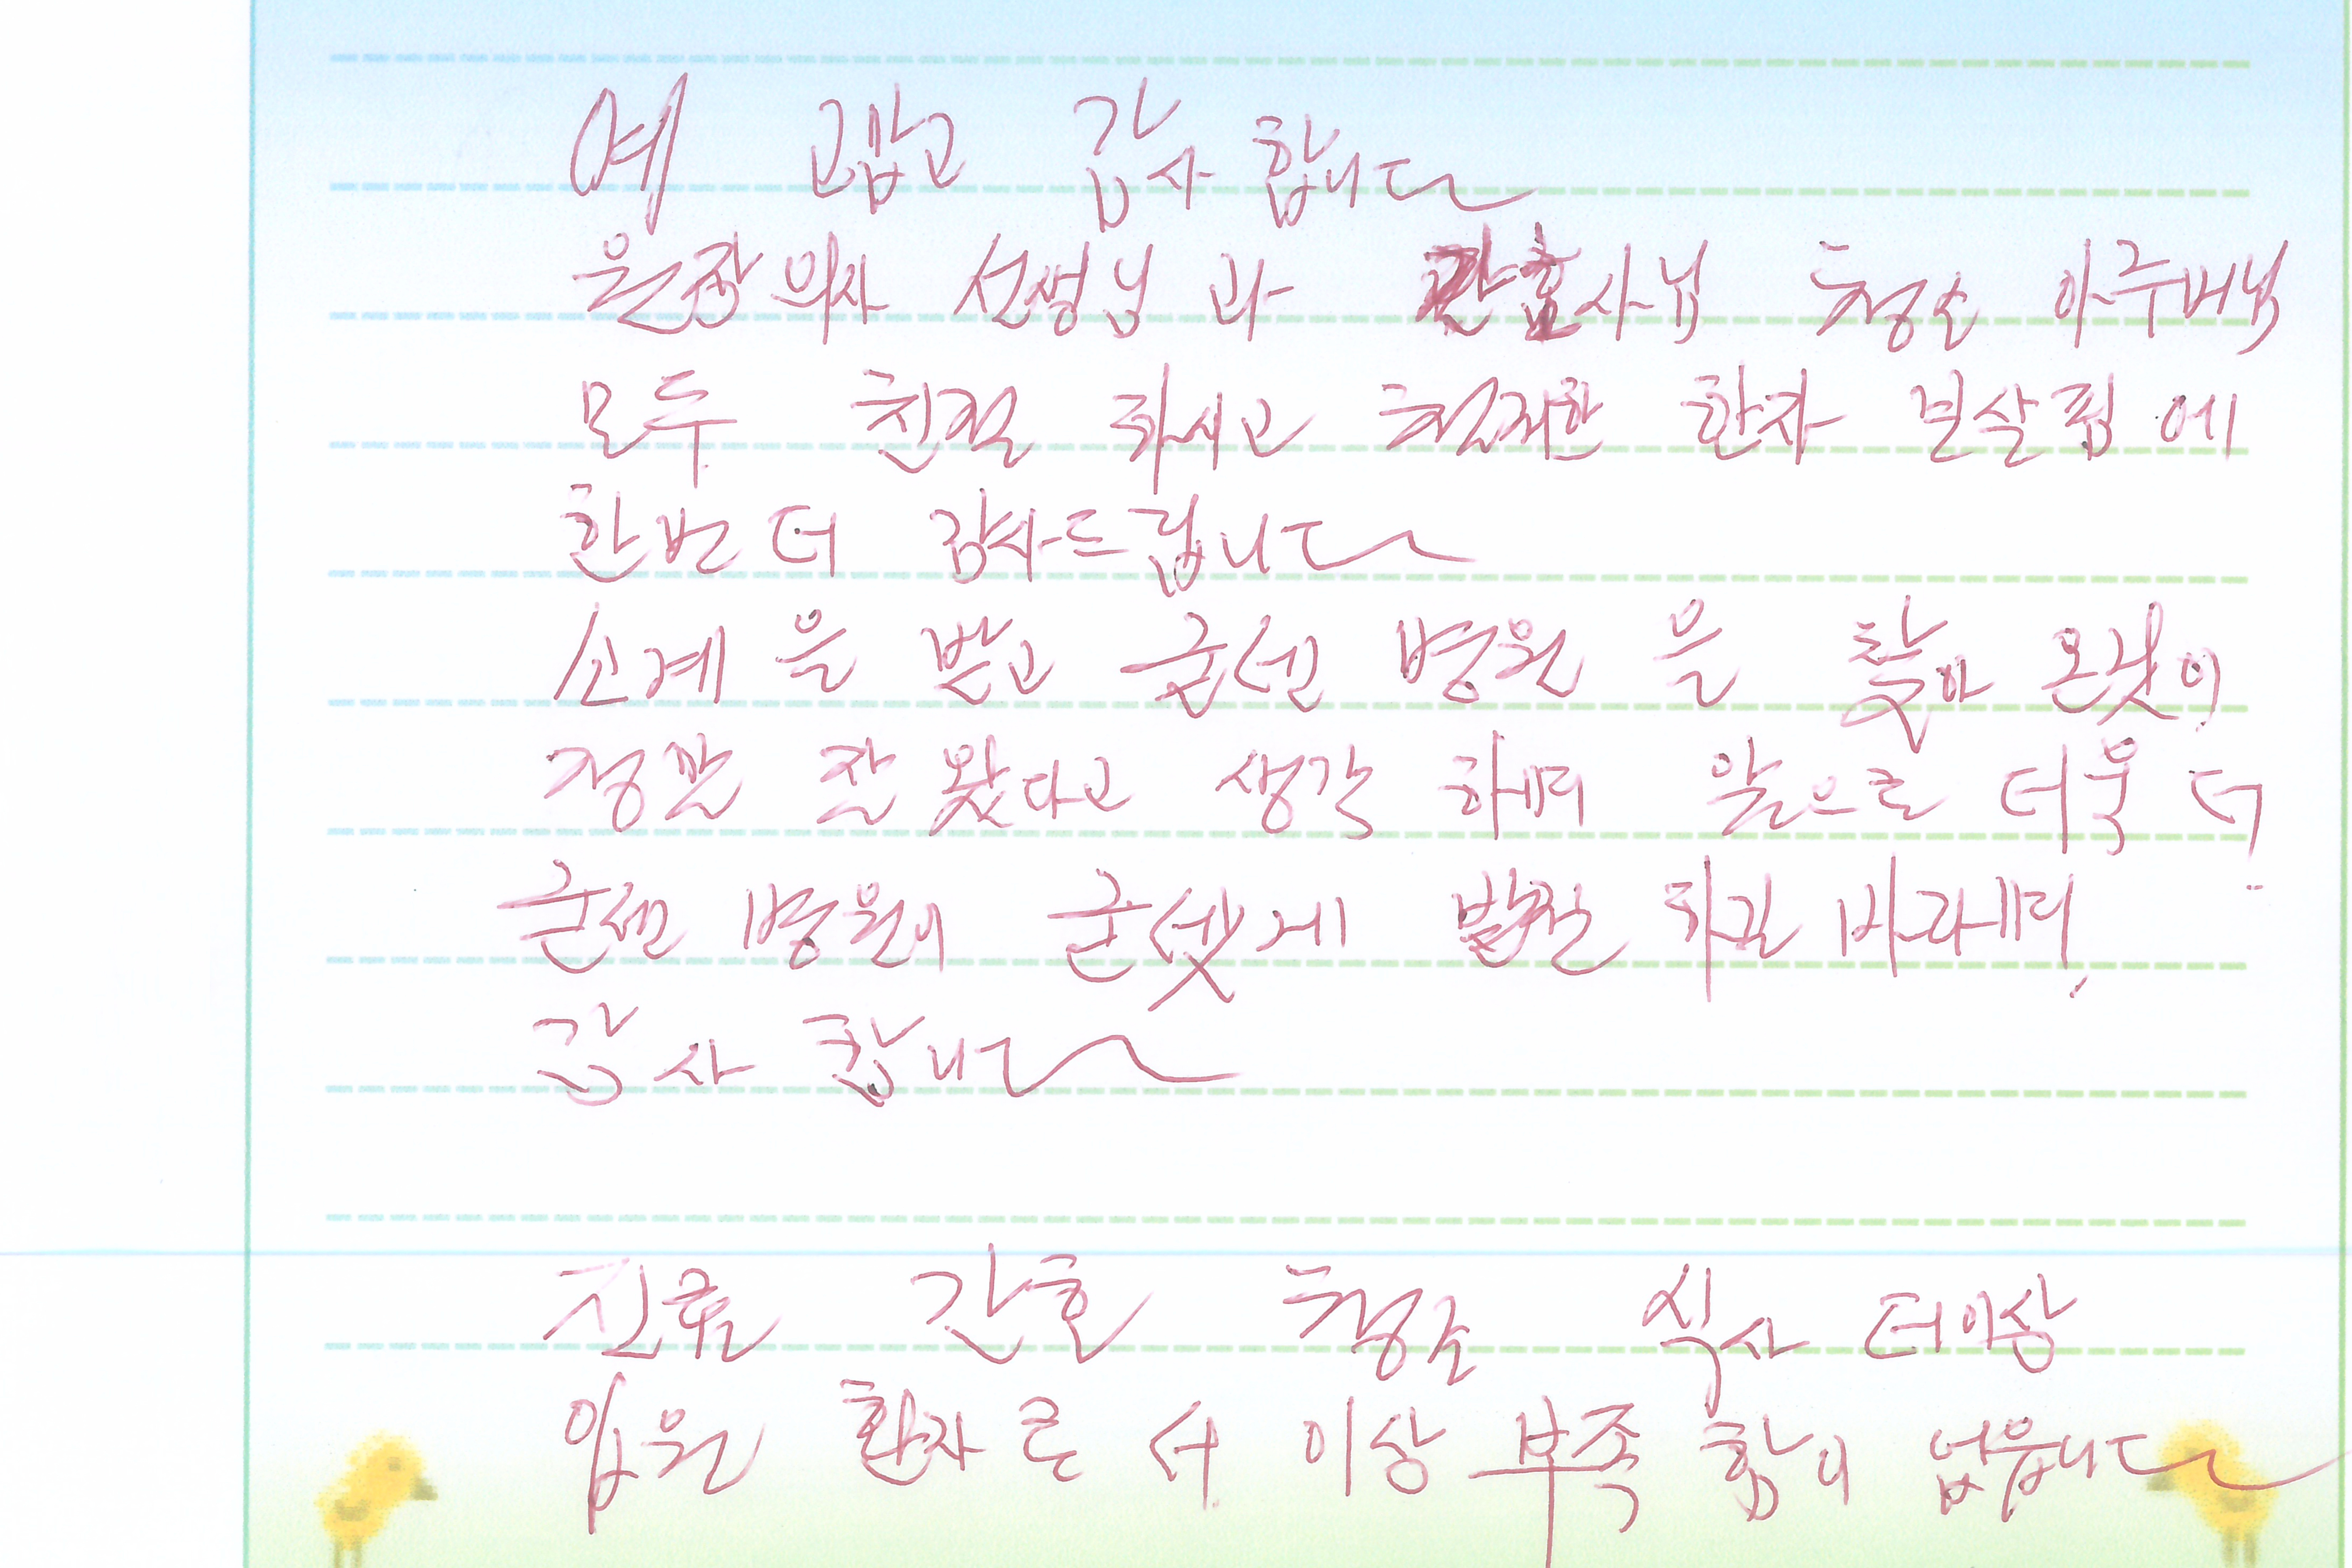 예 고맙고 감사 합니다
원장 의사 선생님 과 간호사님 청소 아주머님
모두 친절 하시고 철저한 환자 보살핌 에
한번 더 감사드립니다
소개 을 받고 굳센 병원 을 찾아 온것이
정말 잘 왔다고 생각 하며 앞으로 더욱 더
굳센 병원이 굳셋게 발전 하길 바라며
감사 합니다
진료 간호 청소 식사 더이상
입원 환자로 서 이상 부족 함이 없읍니다